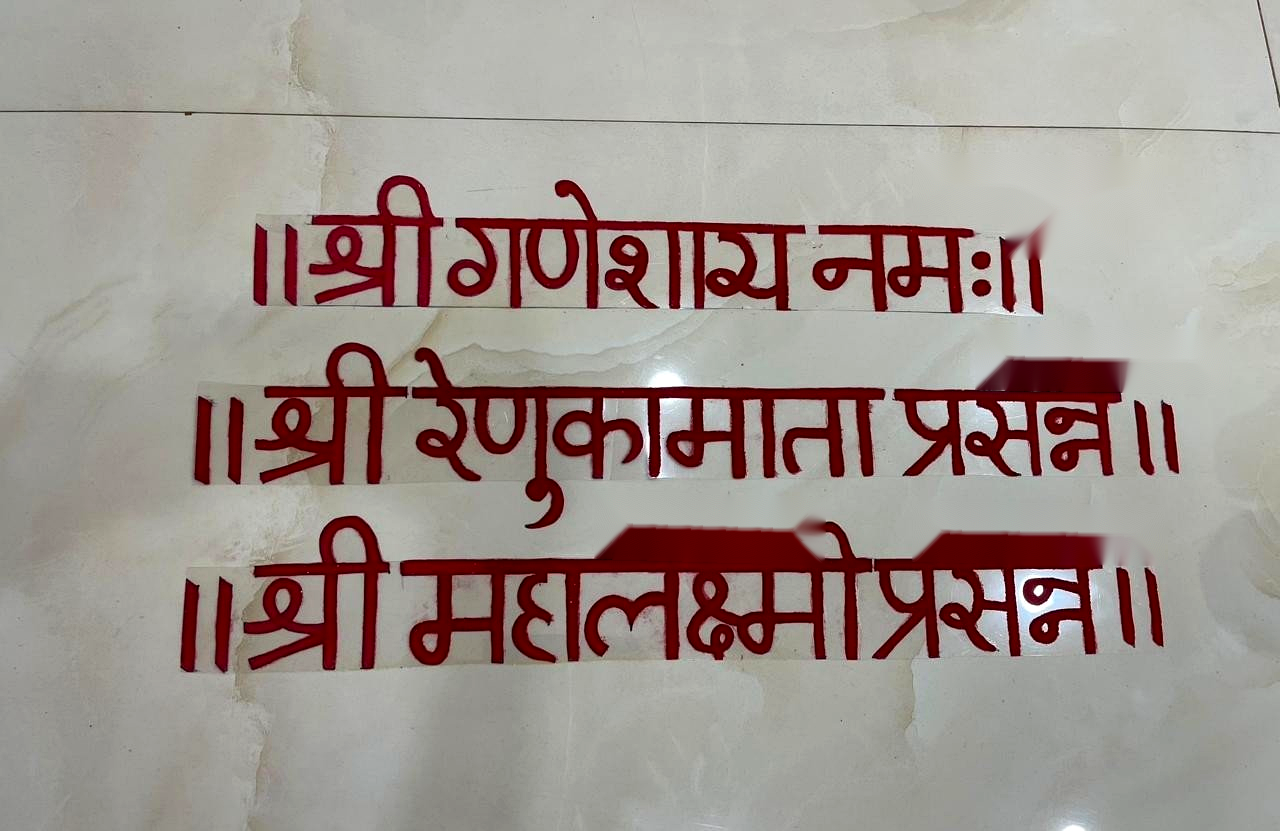 ॥श्री गणेशाय नमः॥
॥श्री रेणुकामाता प्रसन्न॥
॥श्री महालक्ष्मी प्रसन्न॥